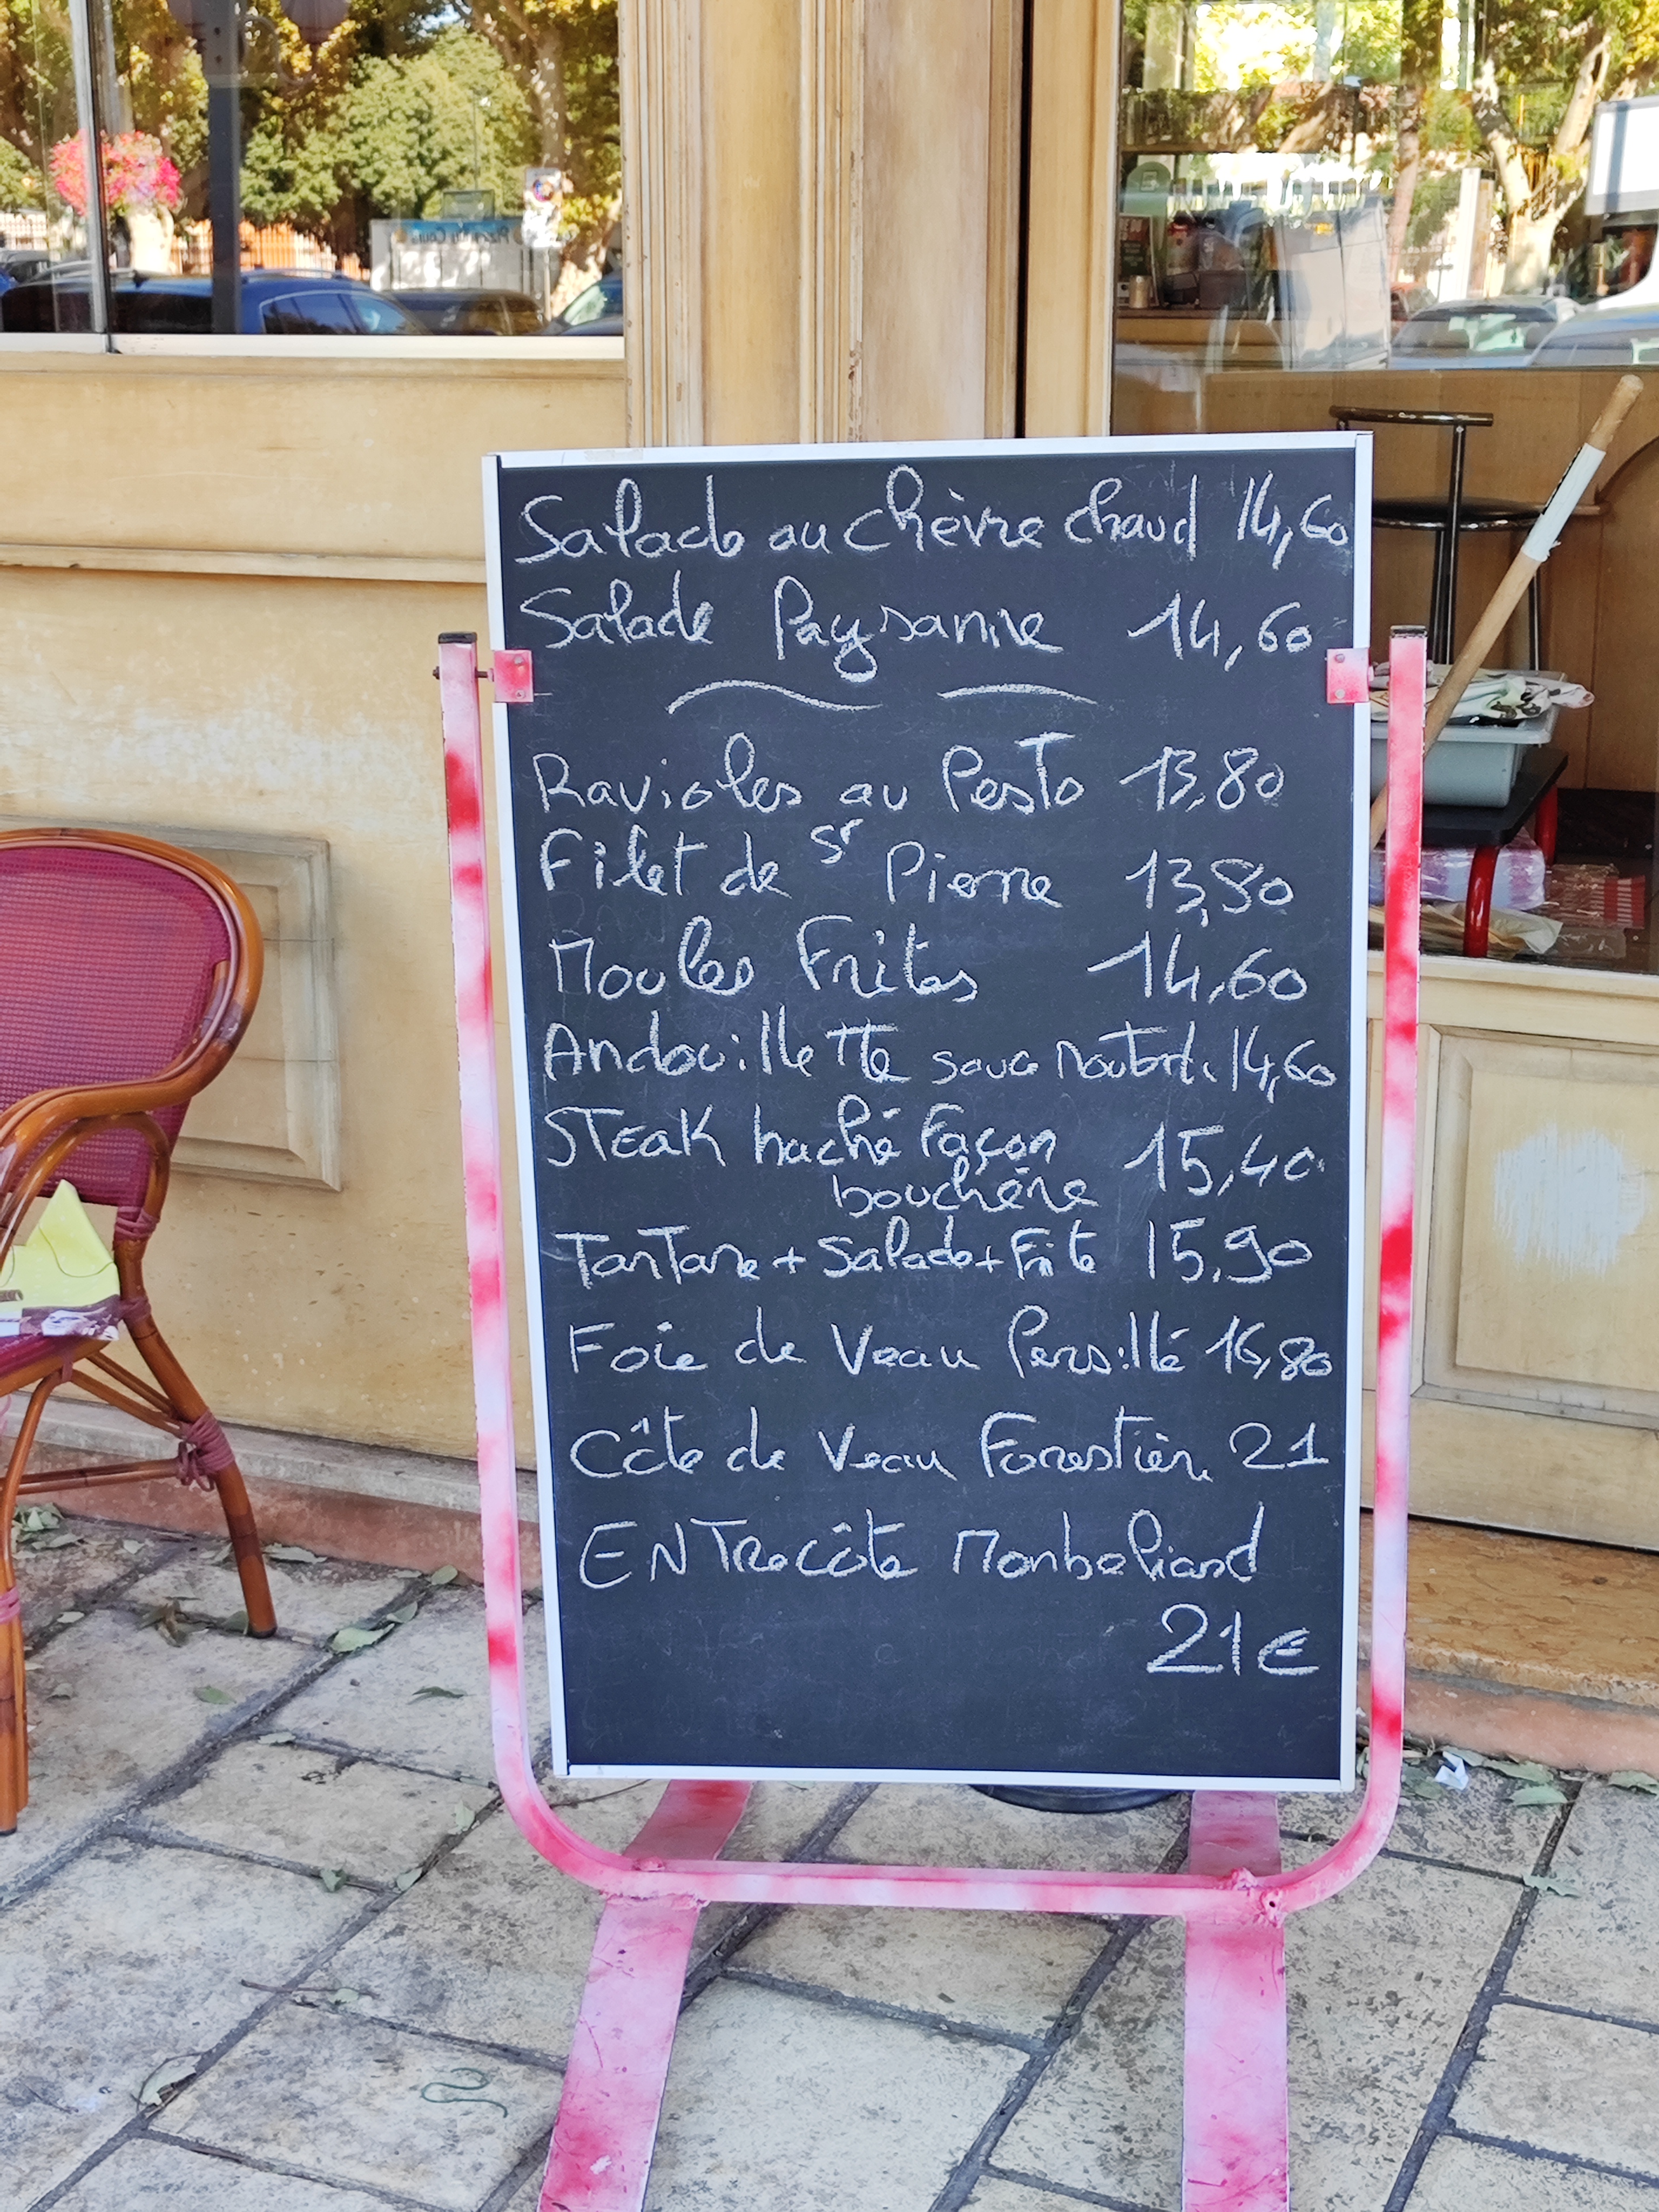 Salade au chèvre chaud 14,60
Salade Paysanne 14,60
Ravioles au Pesto 13,80
Filet de St Pierre 13,80
Moules Frites 14,60
Andouillette sauce moutarde 14,60
STEAK haché Façon 15,40
bouchère
TarTare + Salade + Frite 15,90
Foie de Veau Persillé 16,80
Côte de Veau Forestière 21
ENTrecôte Monbeliard
21€